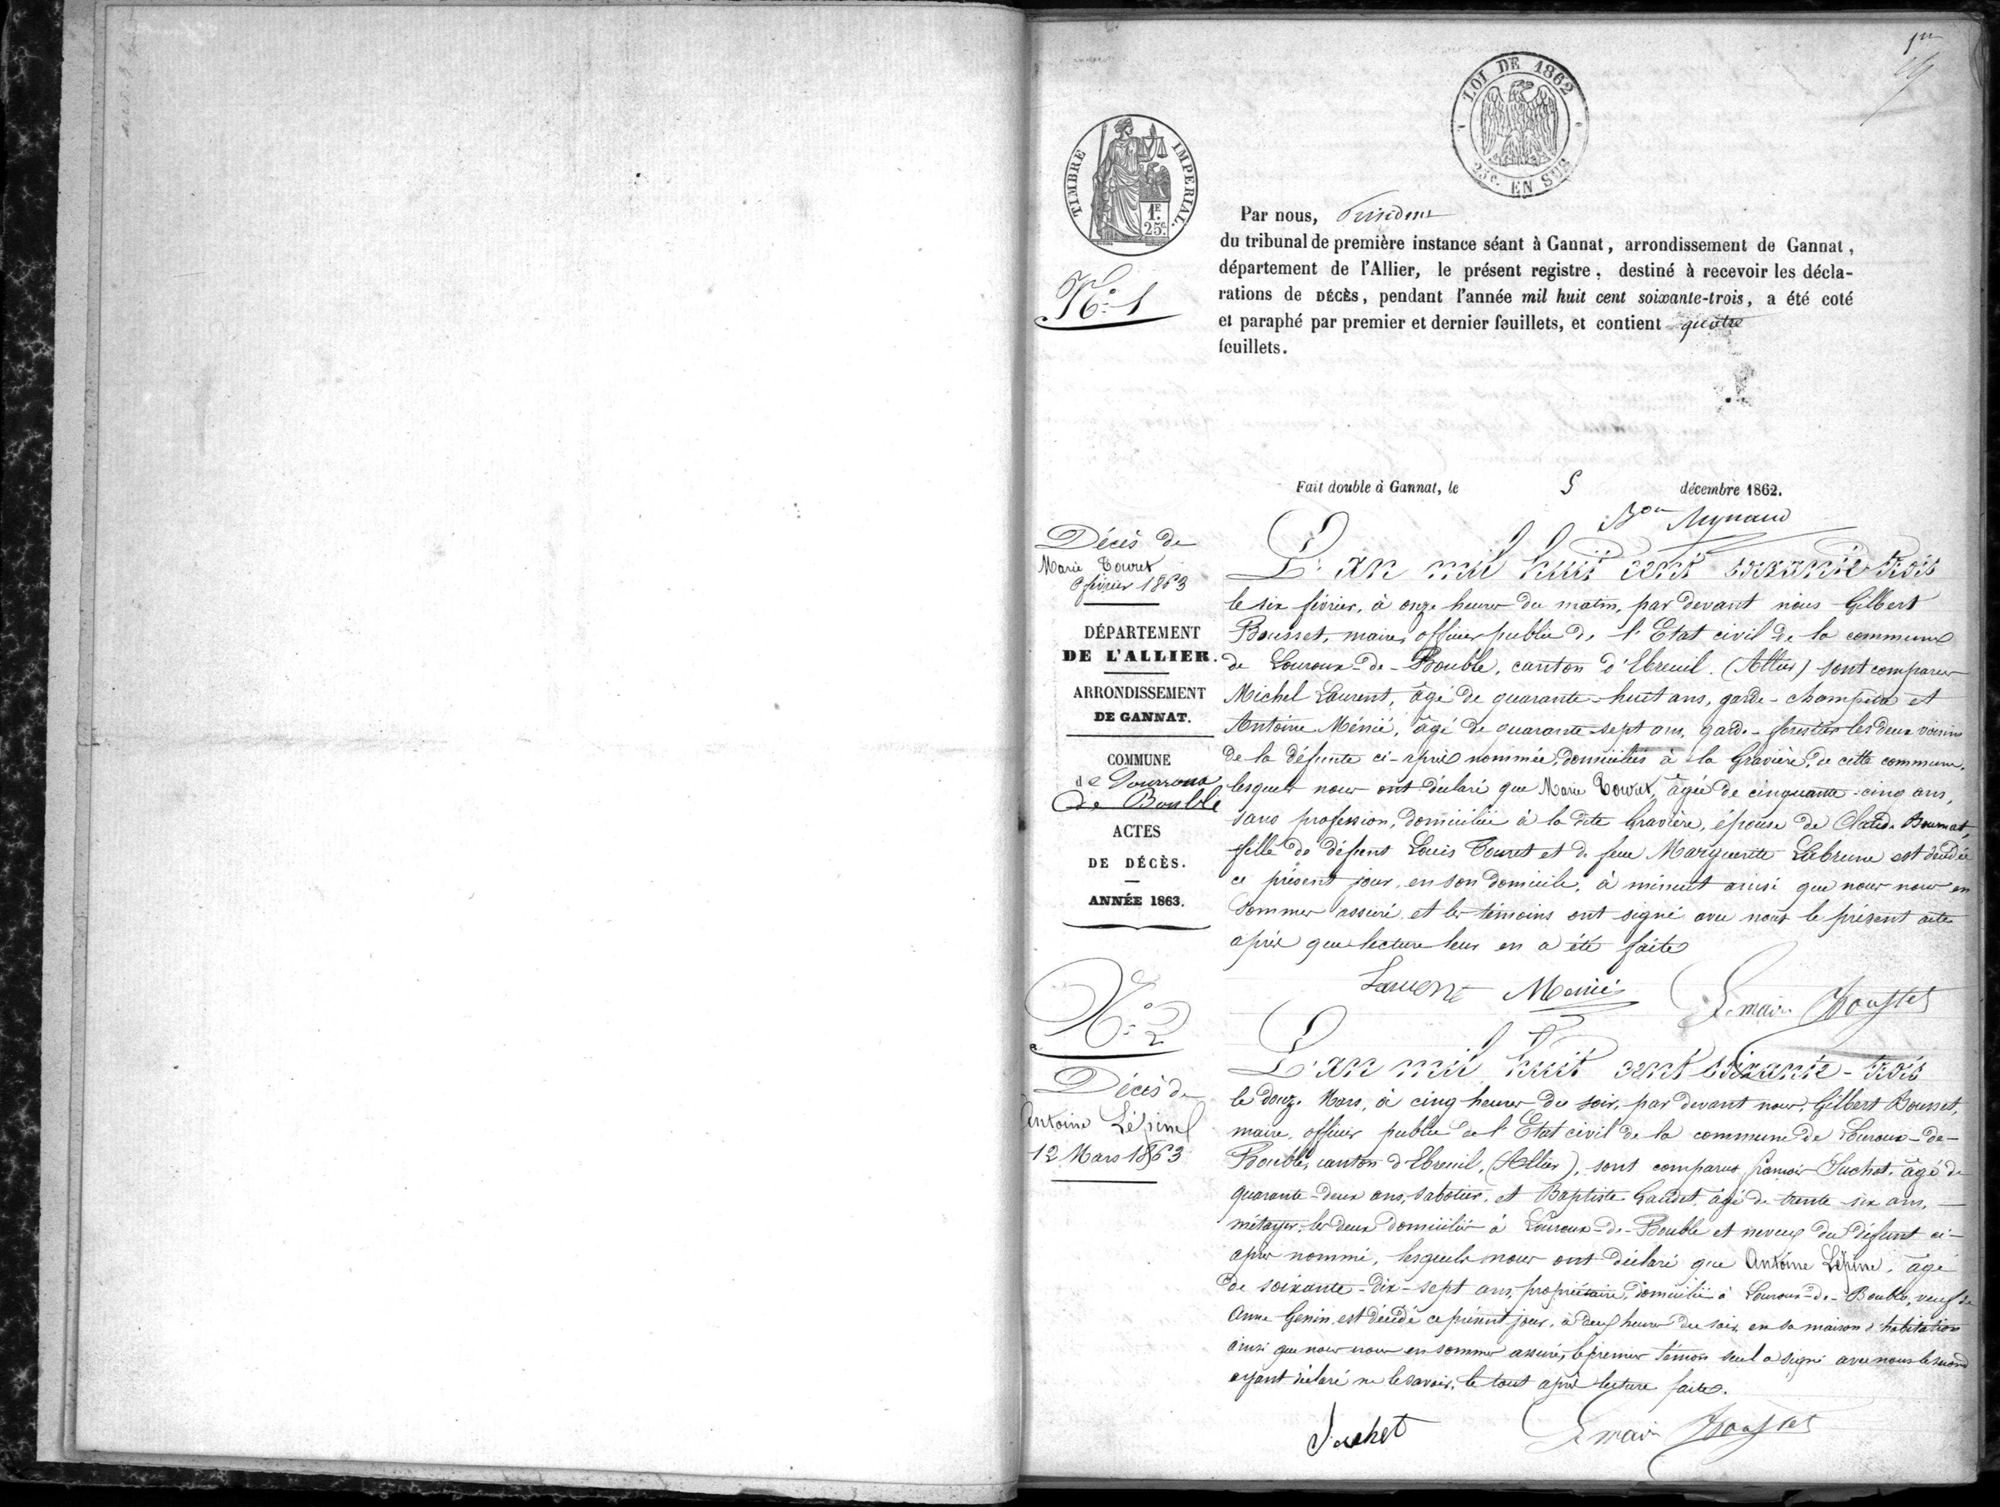 1er
LOI DE 1862
25c. EN SUS
TIMBRE IMPERIAL.
1F. 25c.
Par nous, Président
du tribunal de première instance séant à Gannat, arrondissement de Gannat,
département de l'Allier, le présent registre, destiné à recevoir les décla-
rations de DÉCÈS, pendant l'année mil huit cent soixante-trois, a été coté
et paraphé par premier et dernier feuillets, et contient quatre
feuillets.
Fait double à Gannat, le 5 décembre 1862.
Bon Reynaud
N.° 1
Décès de
Marie Touret
6 février 1863
DÉPARTEMENT
DE L'ALLIER.
ARRONDISSEMENT
DE GANNAT.
COMMUNE
de Louroux
de Bouble
ACTES
DE DÉCÈS.
ANNÉE 1863.
L'an mil huit cent soixante-trois
le six février, à onze heures du matin, par devant nous Gilbert
Bousset, maire, officier public de l'Etat civil de la commune
de Louroux-de-Bouble, canton d'Ebreuil, (Allier) sont comparus
Michel Laurent, âgé de quarante-huit ans, garde-champêtre et
Antoine Ménié, âgé de quarante-sept ans, garde-forestier les deux voisins
de la défunte ci-après nommée, domiciliés à la Gravière, de cette commune,
lesquels nous ont déclaré que Marie Touret, âgée de cinquante-cinq ans,
sans profession, domiciliée à la dite Gravière, épouse de Claude Bournat,
fille de défunt Louis Touret et de feue Marguerite Labrune est décédée
ce présent jour, en son domicile, à minuit ainsi que nous nous en
sommes assuré, et les témoins ont signé avec nous le présent acte
après que lecture leur en a été faite
Laurent Menié Le maire Bousset
N.° 2
Décès de
Antoine Lépine
12 Mars 1863
L'an mil huit cent soixante-trois
le douze Mars, à cinq heures du soir, par devant nous, Gilbert Bousset,
maire, officier public de l'Etat civil de la commune de Louroux-de-
Bouble, canton d'Ebreuil, (Allier), sont comparus françois Suchet, âgé de
quarante-deux ans, sabotier, et Baptiste Gaudet, âgé de trente-six ans,
métayer, les deux domiciliés à Louroux-de-Bouble et neveux du défunt ci-
après nommé, lesquels nous ont déclaré que Antoine Lépine, âgé
de soixante-dix-sept ans, propriétaire, domicilié à Louroux-de-Bouble, veuf de
Anne Genin, est décédé ce présent jour, à deux heures du soir, en sa maison d'habitation
ainsi que nous nous en sommes assuré, le premier témoin seul a signé avec nous le second
ayant déclaré ne le savoir, le tout après lecture faite.
Suchet Le maire Bousset